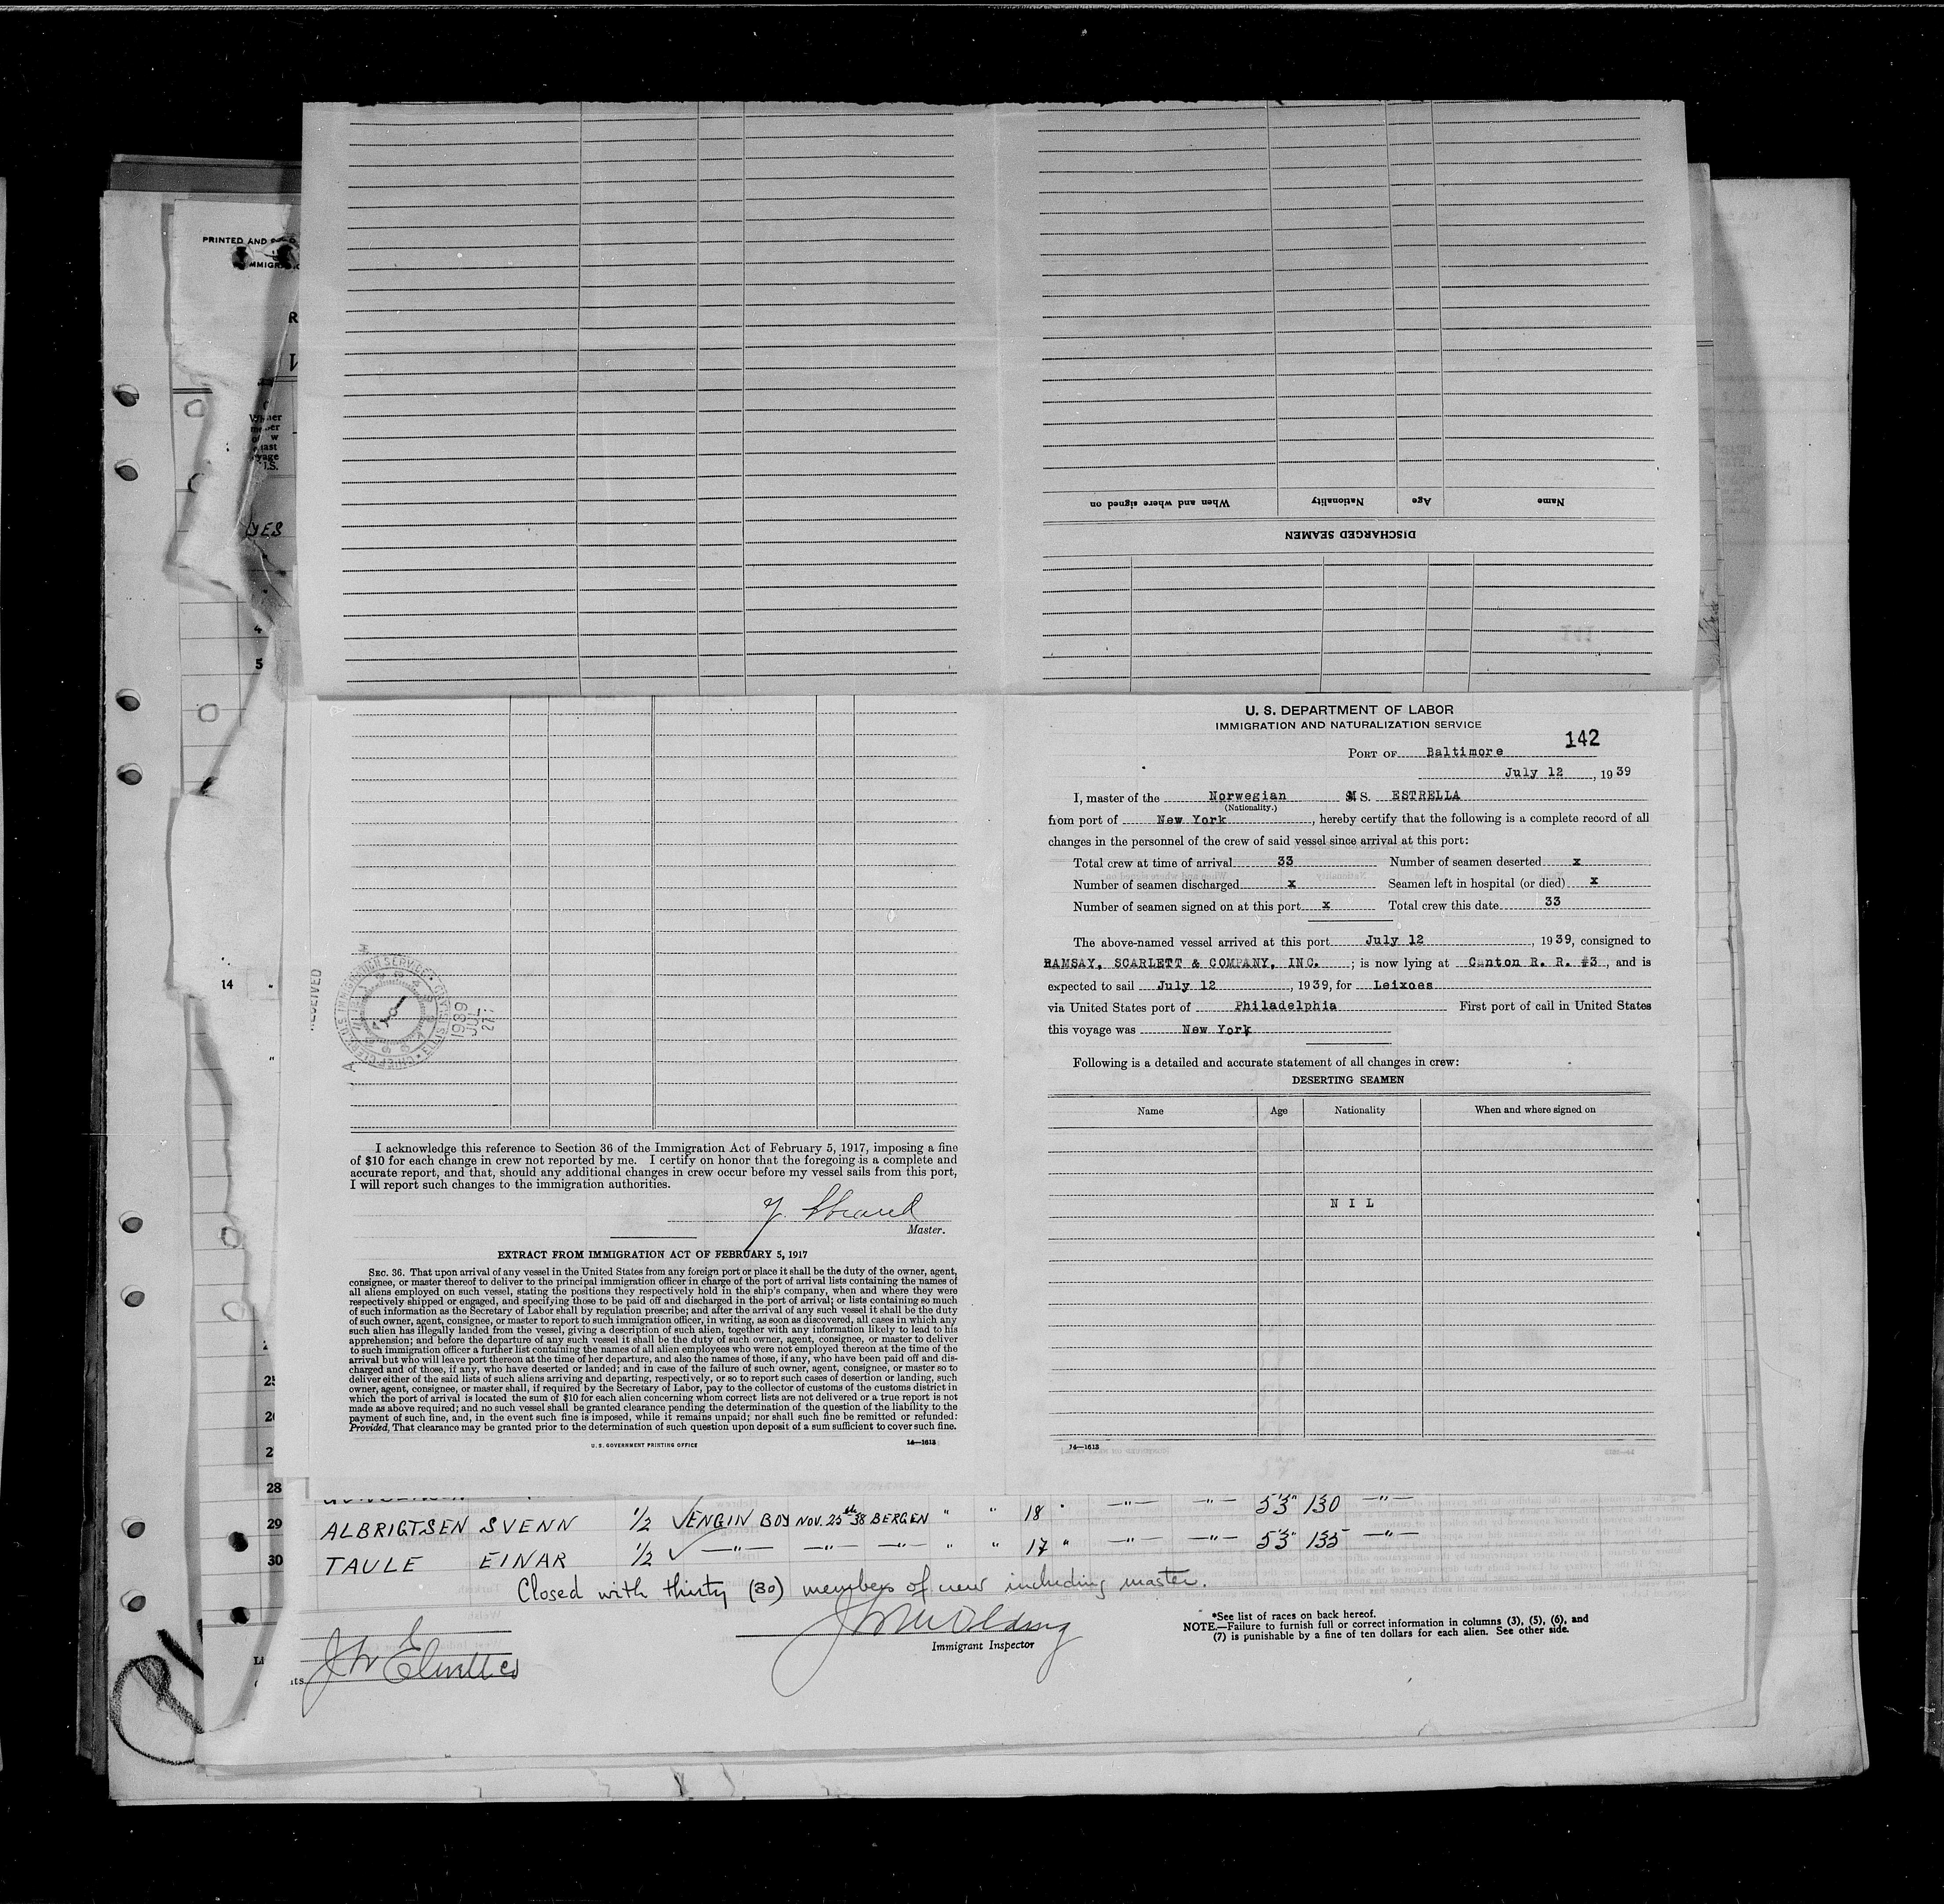 PRINTED AND
MMIGR
YES
4
5
14
When and where signed on Nationality Age Name
DISCHARGED SEAMEN
U. S. DEPARTMENT OF LABOR
IMMIGRATION AND NATURALIZATION SERVICE
142
PORT OF Baltimore
July 12, 1939
I, master of the Norwegian MS. ESTRELLA
(Nationality.)
from port of New York, hereby certify that the following is a complete record of all
changes in the personnel of the crew of said vessel since arrival at this port:
Total crew at time of arrival 33 Number of seamen deserted x
Number of seamen discharged x Seamen left in hospital (or died) x
Number of seamen signed on at this port x Total crew this date 33
The above-named vessel arrived at this port July 12, 1939, consigned to
RAMSAY, SCARLETT & COMPANY, INC. ; is now lying at Canton R. R. #3, and is
expected to sail July 12, 1939, for Leixoes
via United States port of Philadelphia First port of call in United States
this voyage was New York
Following is a detailed and accurate statement of all changes in crew:
DESERTING SEAMEN
Name Age Nationality When and where signed on
N I L
14—1613
RECEIVED
1939
JUL
27
I acknowledge this reference to Section 36 of the Immigration Act of February 5, 1917, imposing a fine
of $10 for each change in crew not reported by me. I certify on honor that the foregoing is a complete and
accurate report, and that, should any additional changes in crew occur before my vessel sails from this port,
I will report such changes to the immigration authorities.
Master.
EXTRACT FROM IMMIGRATION ACT OF FEBRUARY 5, 1917
SEC. 36. That upon arrival of any vessel in the United States from any foreign port or place it shall be the duty of the owner, agent,
consignee, or master thereof to deliver to the principal immigration officer in charge of the port of arrival lists containing the names of
all aliens employed on such vessel, stating the positions they respectively hold in the ship's company, when and where they were
respectively shipped or engaged, and specifying those to be paid off and discharged in the port of arrival; or lists containing so much
of such information as the Secretary of Labor shall by regulation prescribe; and after the arrival of any such vessel it shall be the duty
of such owner, agent, consignee, or master to report to such immigration officer, in writing, as soon as discovered, all cases in which any
such alien has illegally landed from the vessel, giving a description of such alien, together with any information likely to lead to his
apprehension; and before the departure of any such vessel it shall be the duty of such owner, agent, consignee, or master to deliver
to such immigration officer a further list containing the names of all alien employees who were not employed thereon at the time of the
arrival but who will leave port thereon at the time of her departure, and also the names of those, if any, who have been paid off and dis-
charged and of those, if any, who have deserted or landed; and in case of the failure of such owner, agent, consignee, or master so to
deliver either of the said lists of such aliens arriving and departing, respectively, or so to report such cases of desertion or landing, such
owner, agent, consignee, or master shall, if required by the Secretary of Labor, pay to the collector of customs of the customs district in
which the port of arrival is located the sum of $10 for each alien concerning whom correct lists are not delivered or a true report is not
made as above required; and no such vessel shall be granted clearance pending the determination of the question of the liability to the
payment of such fine, and, in the event such fine is imposed, while it remains unpaid; nor shall such fine be remitted or refunded:
Provided, That clearance may be granted prior to the determination of such question upon deposit of a sum sufficient to cover such fine.
U. S. GOVERNMENT PRINTING OFFICE 14—1613
28
29 ALBRIGTSEN SVENN 1/2 ENGIN BOY NOV. 25th 38 BERGEN " " 18 " —"— —"— 5'3" 130 —"—
30 TAULE EINAR 1/2 —"— —"— —"— " " 17 " —"— —"— 5'3" 135 —"—
Closed with thirty (30) members of crew including master.
Immigrant Inspector
*See list of races on back hereof.
NOTE.—Failure to furnish full or correct information in columns (3), (5), (6), and
(7) is punishable by a fine of ten dollars for each alien. See other side.